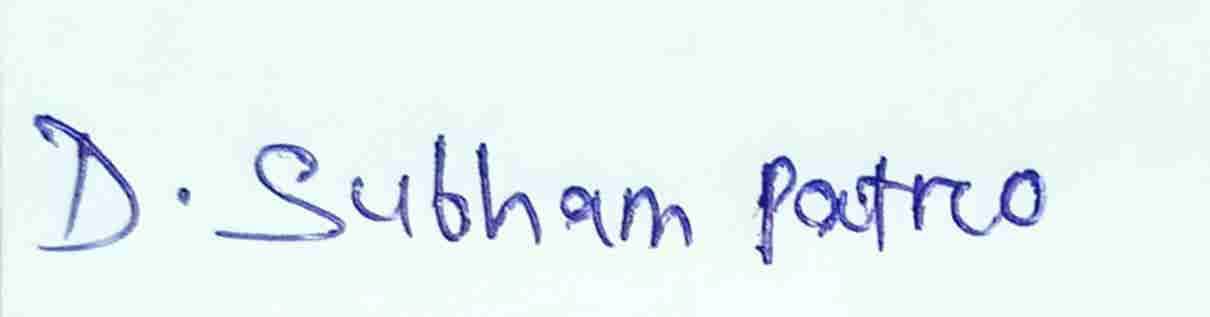 D. Subham Patro